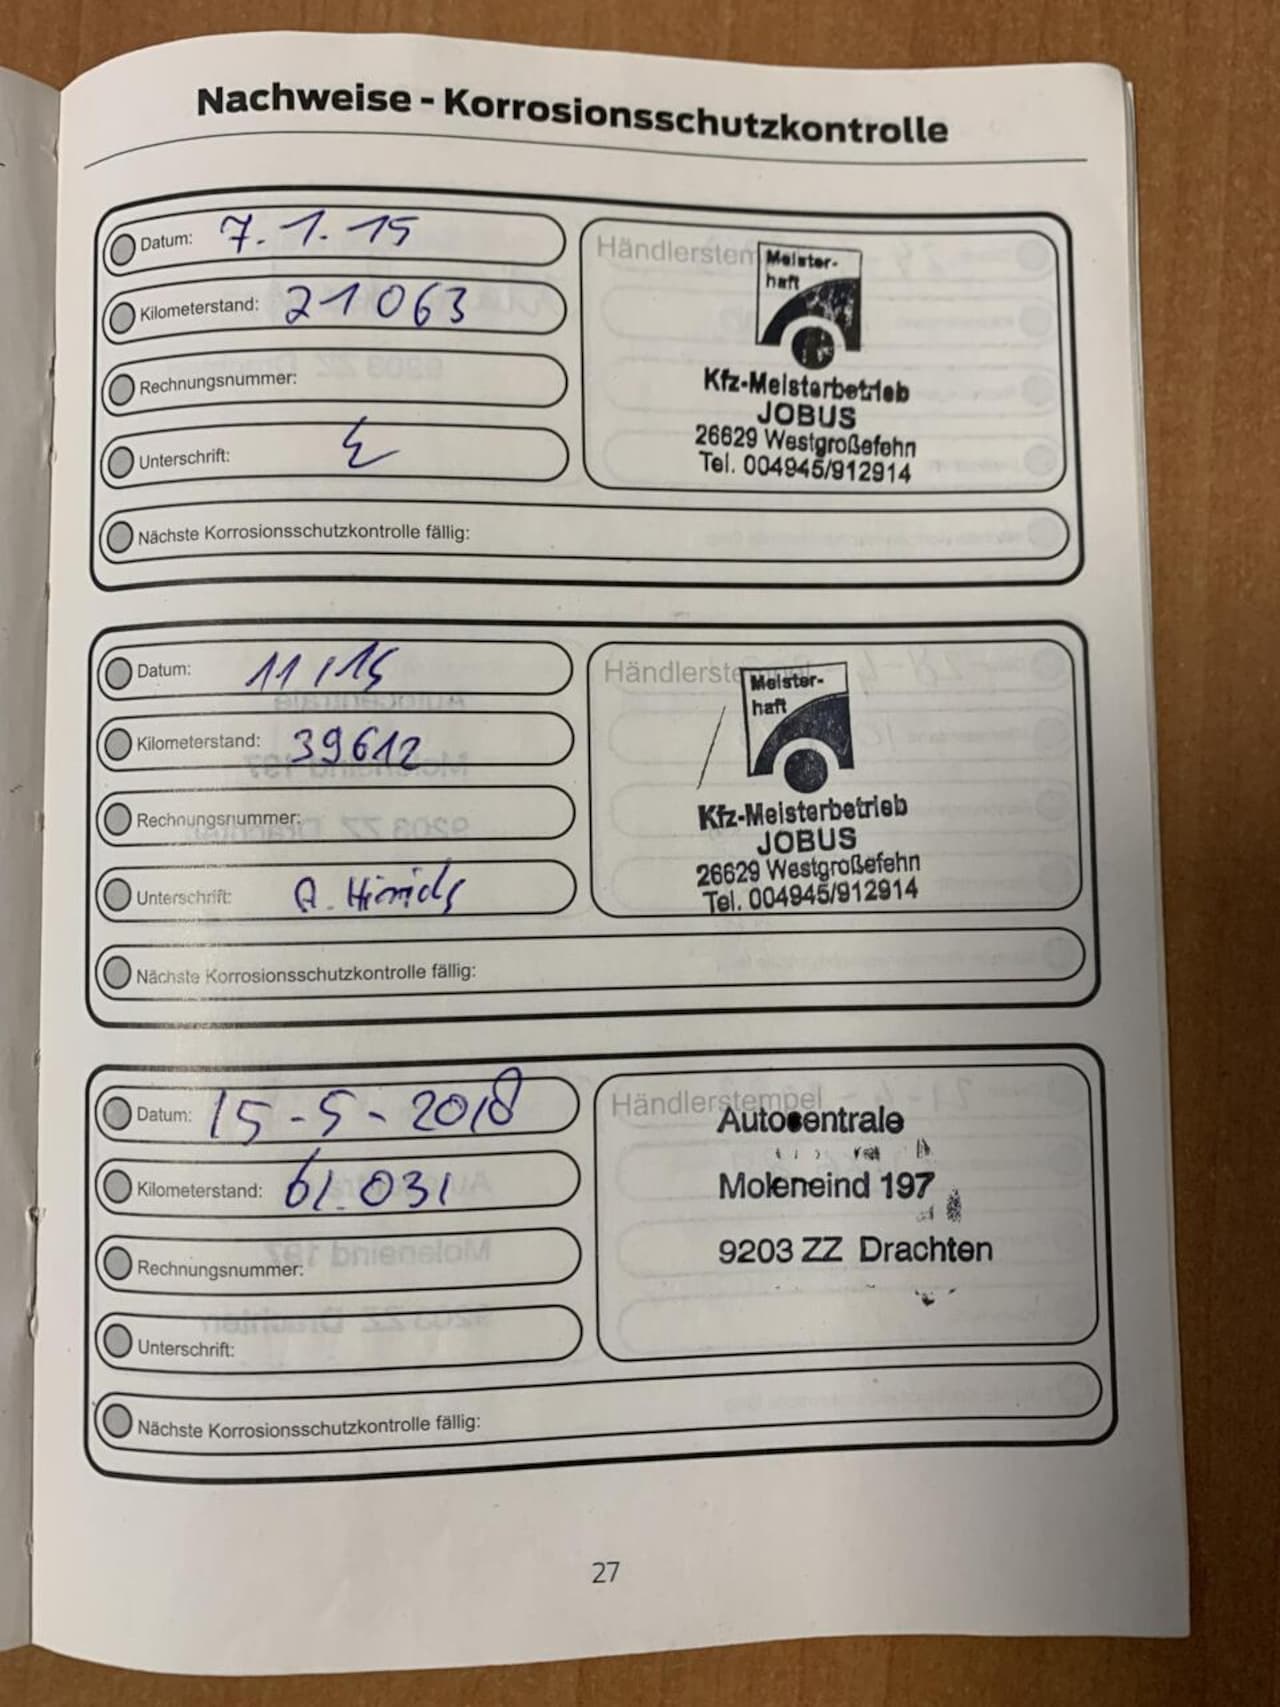 Nachweise - Korrosionsschutzkontrolle
Datum: 7.1.15
Kilometerstand: 21063
Rechnungsnummer:
Unterschrift:
Händlerstem
Meister-
haft
Kfz-Meisterbetrieb
JOBUS
26629 Westgroßefehn
Tel. 004945/912914
Nächste Korrosionsschutzkontrolle fällig:
Datum: 11/15
Kilometerstand: 39612
Rechnungsnummer:
Unterschrift: A. Hinrichs
Händlerstempel
Meister-
haft
Kfz-Meisterbetrieb
JOBUS
26629 Westgroßefehn
Tel. 004945/912914
Nächste Korrosionsschutzkontrolle fällig:
Datum: 15-5-2018
Kilometerstand: 61.031
Rechnungsnummer:
Unterschrift:
Händlerstempel
Autocentrale
Moleneind 197
9203 ZZ Drachten
Nächste Korrosionsschutzkontrolle fällig:
27